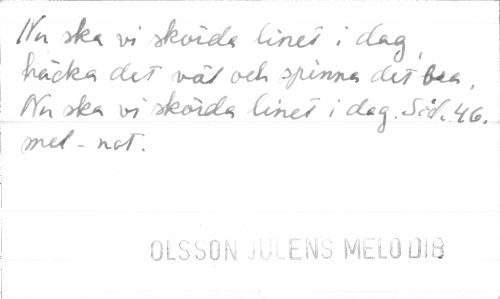 Nu ska vi skörda linet i dag,
häcka det väl och spinna det bra,
Nu ska vi skörda linet i dag. Sid. 46.
mel-not.
OLSSON JULENS MELODIB